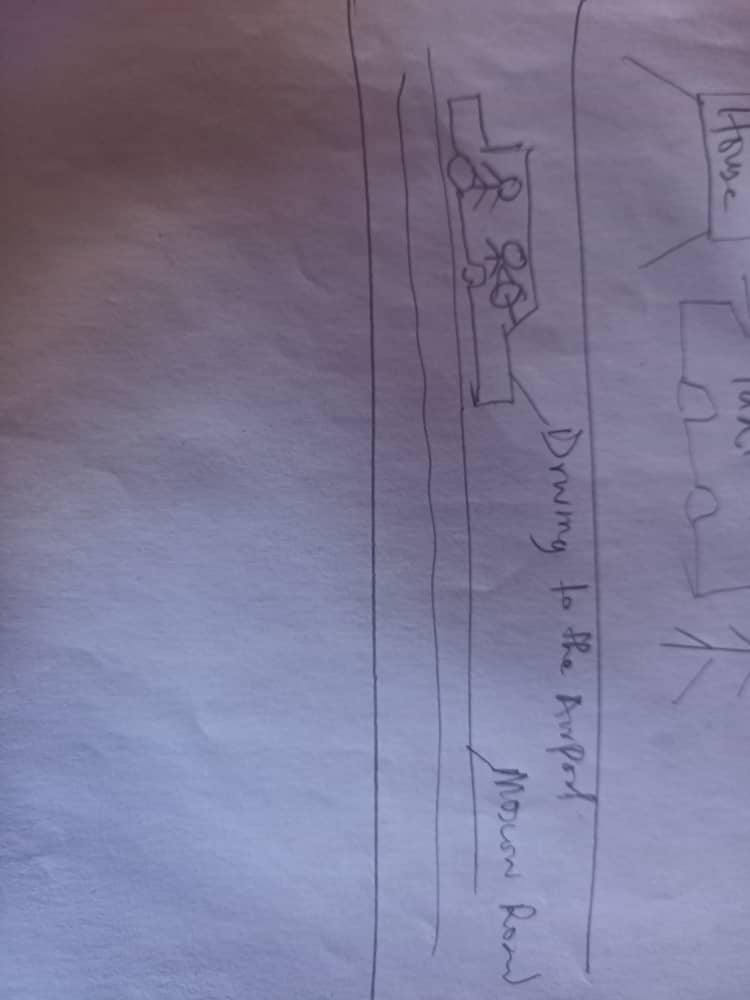 House
Taxi
Driving to the Airport
Moscow Road